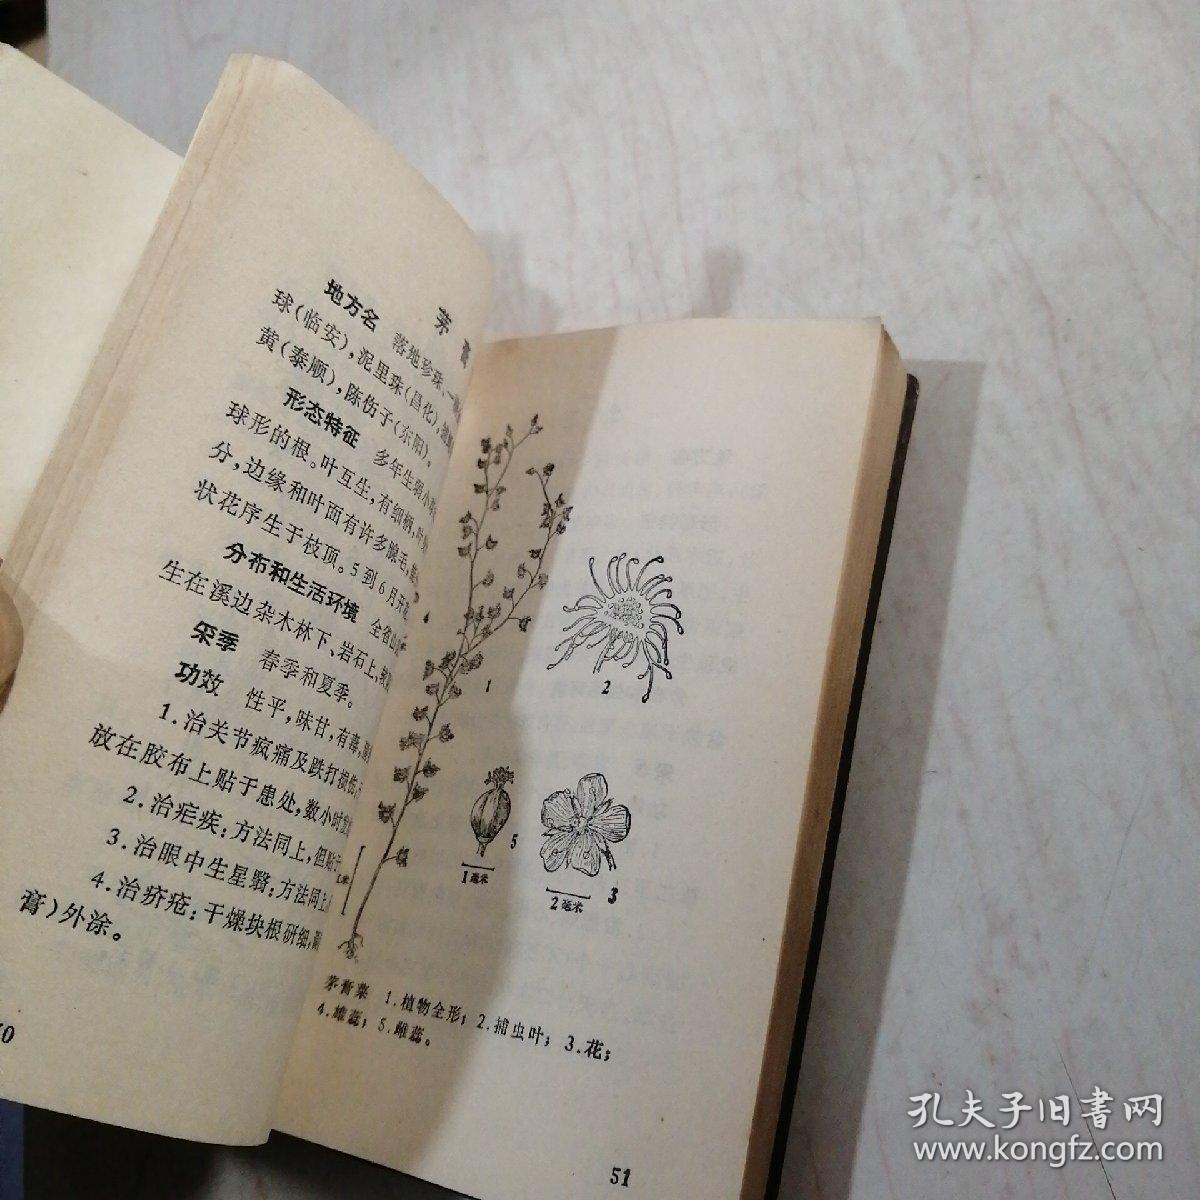 茅膏
地方名 落地珍珠、一
球(临安),泥里珠(昌化),
黄(泰顺),陈伤子(东阳)。
形态特征 多年生弱小
球形的根。叶互生,有细柄,叶
分,边缘和叶面有许多腺毛,
状花序生于枝顶。5到6月开
分布和生活环境 全省山
生在溪边杂木林下、岩石上,
采季 春季和夏季。
功效 性平,味甘,有毒,
1.治关节疯痛及跌打损伤:
放在胶布上贴于患处,数小时
2.治疟疾:方法同上,但贴
3.治眼中生星翳:方法同上
4.治疥疮:干燥块根研细,
膏)外涂。
1
2
3
4
5
1毫米
2毫米
茅膏菜 1.植物全形;2.捕虫叶;3.花;
4.雄蕊;5.雌蕊。
51
孔夫子旧书网
www.kongfz.com